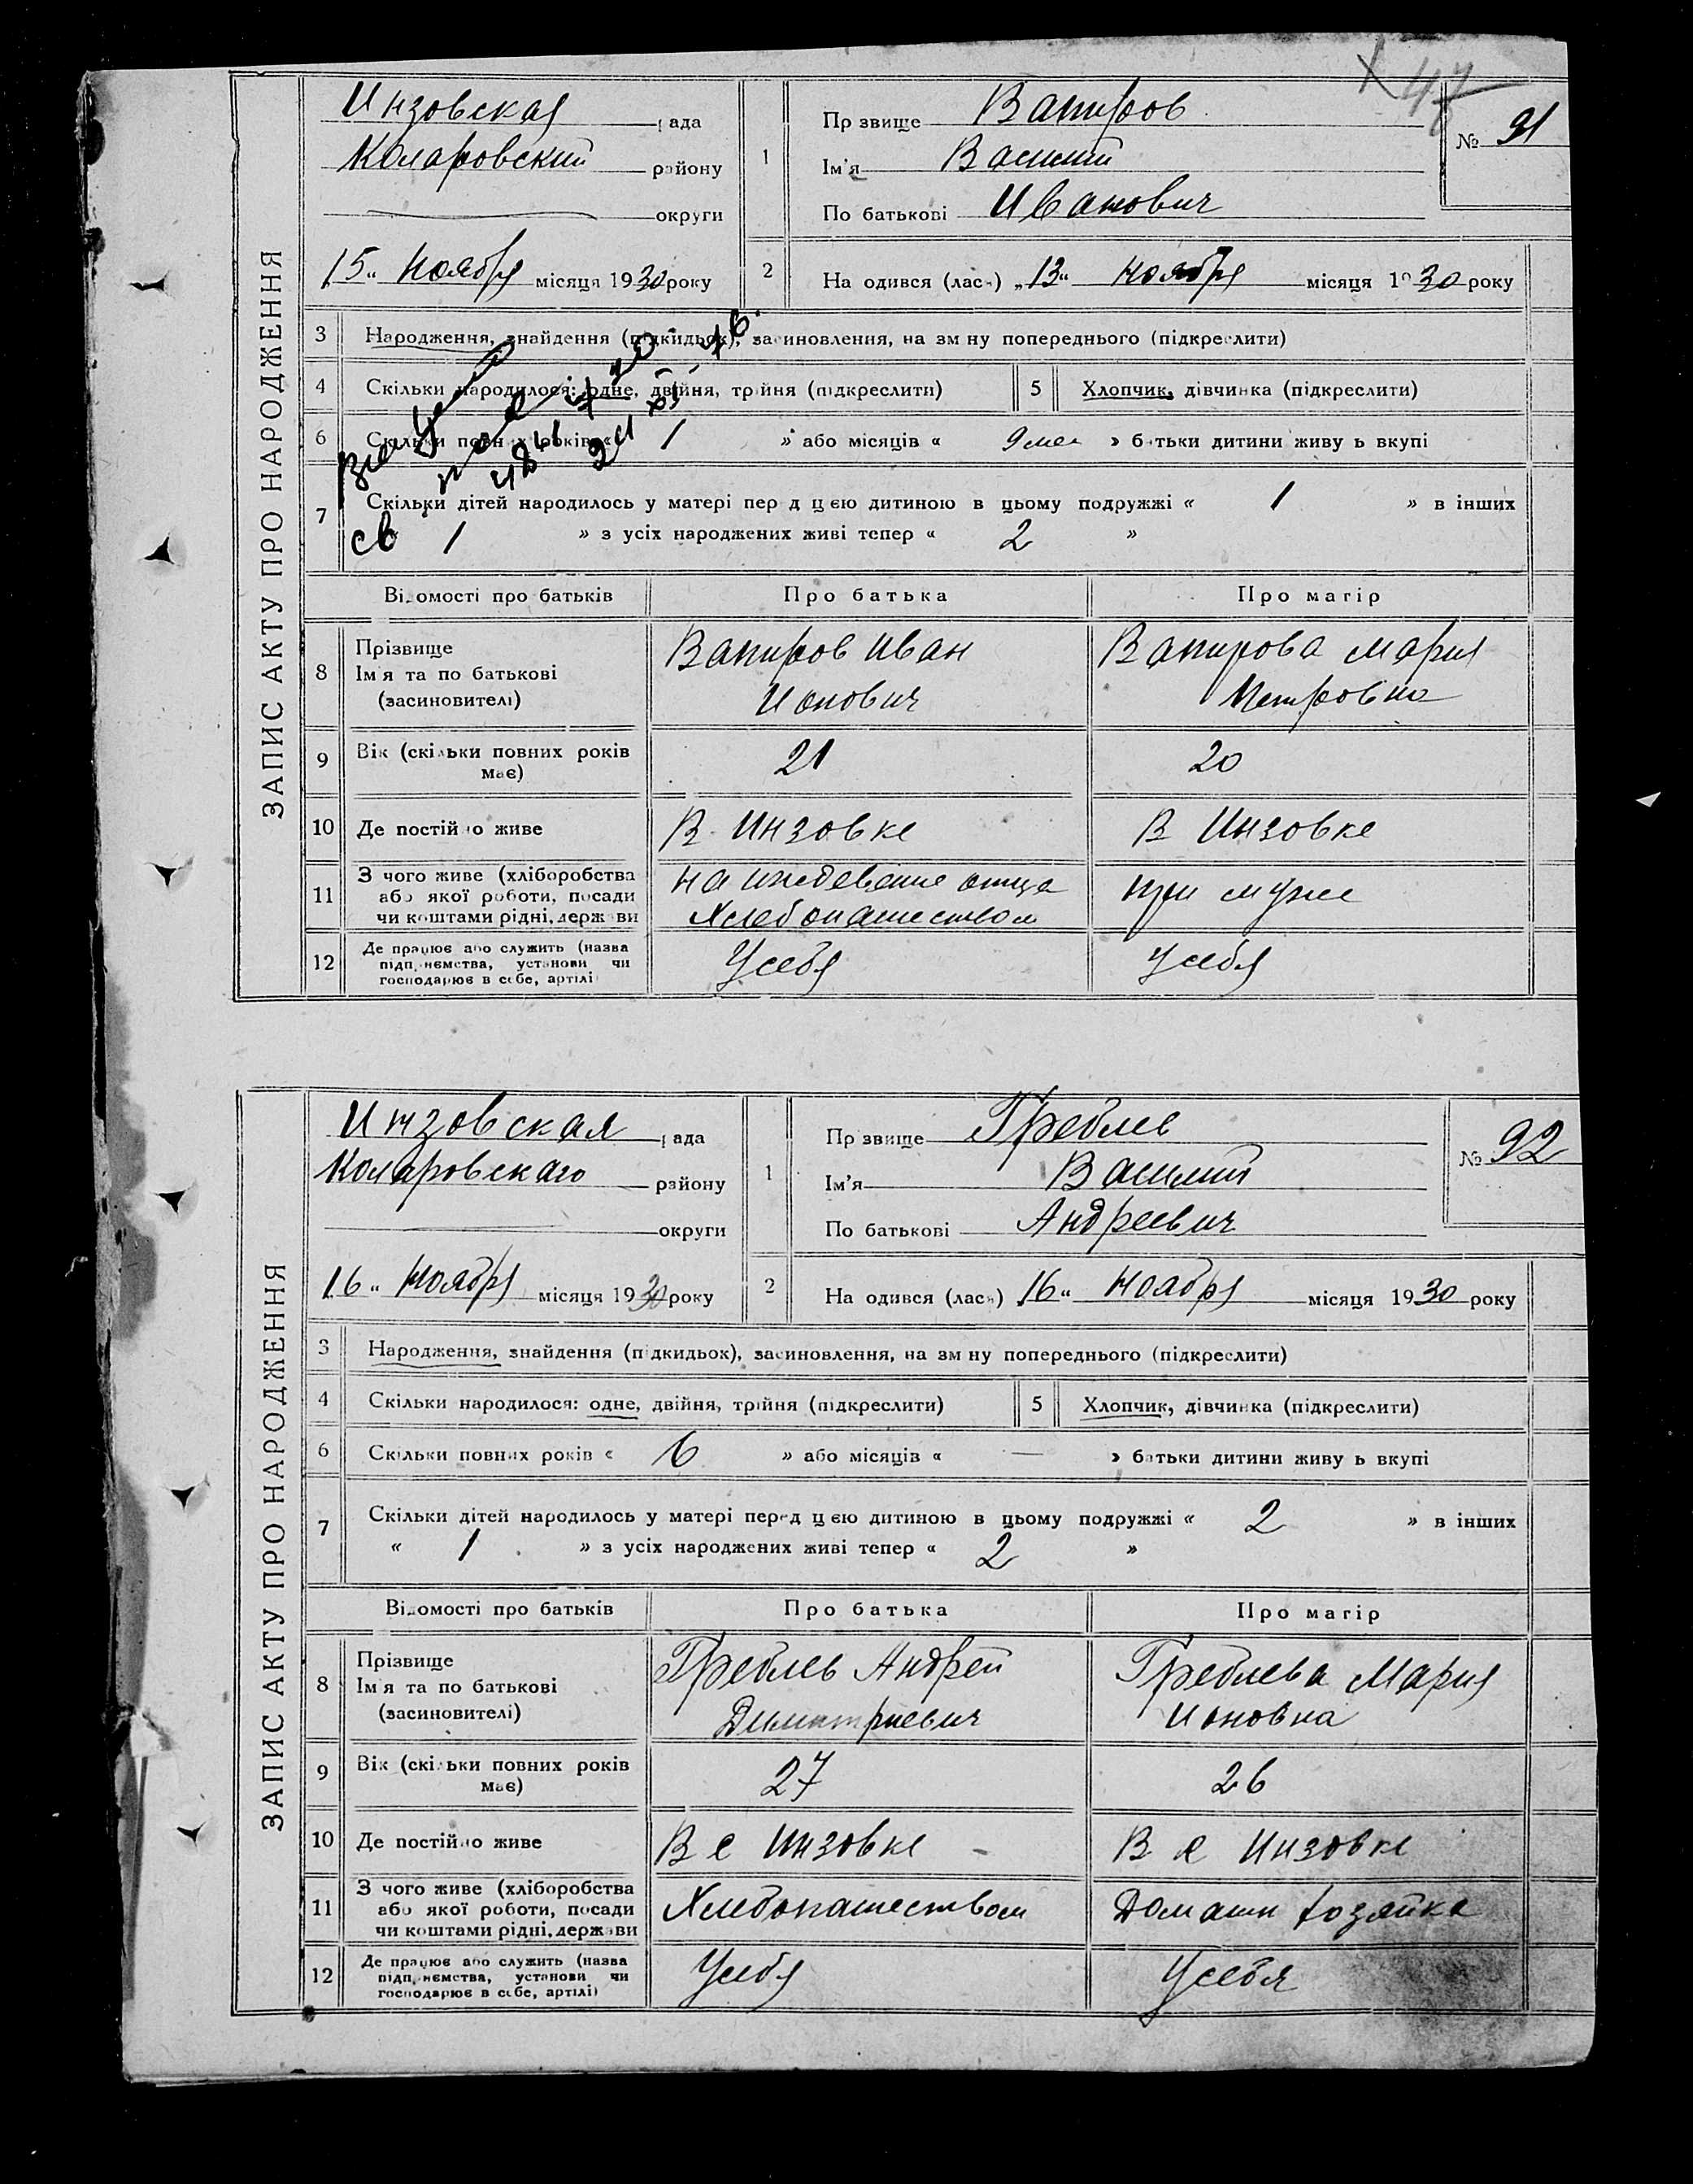 47
ЗАПИС АКТУ ПРО НАРОДЖЕННЯ
Инзовская рада
Коларовский району
округи
15" Ноября місяця 1930 року
1
Прізвище Вапиров
Ім'я Василий
По батькові Иванович
№ 91
2 На одився (лась) „13" Ноября місяця 1930 року
3 Народження, знайдення (підкидьок), засиновлення, на зм ну попереднього (підкреслити)
4 Скільки народилося: одне, двійня, трійня (підкреслити) 5 Хлопчик, дівчинка (підкреслити)
6 Скільки повних років « 1 » або місяців « 9 мес » батьки дитини живу ь вкупі
7 Скільки дітей народилось у матері перед цією дитиною в цьому подружжі « 1 » в інших
« 1 » з усіх народжених живі тепер « 2 »
Відомості про батьків Про батька Про матір
8 Прізвище Ім'я та по батькові (засиновителі) Вапиров Иван Ионович Вапирова Мария Петровна
9 Вік (скільки повних років має) 21 20
10 Де постійно живе В Инзовке В Инзовке
11 З чого живе (хліборобства або якої роботи, посади чи коштами рідні, держави на иждевение отца Хлебопашеством при муже
12 Де працює або служить (назва підприємства, установи чи господарює в себе, артілі Усебя Усебя
ЗАПИС АКТУ ПРО НАРОДЖЕННЯ
Инзовская рада
Коларовскаго району
округи
16" Ноября місяця 1930 року
1
Прізвище Греблев
Ім'я Василий
По батькові Андреевич
№ 92
2 На одився (лась) 16" Ноября місяця 1930 року
3 Народження, знайдення (підкидьок), засиновлення, на зм ну попереднього (підкреслити)
4 Скільки народилося: одне, двійня, трійня (підкреслити) 5 Хлопчик, дівчинка (підкреслити)
6 Скільки повних років « 6 » або місяців « — » батьки дитини живу ь вкупі
7 Скільки дітей народилось у матері перед цією дитиною в цьому подружжі « 2 » в інших
« 1 » з усіх народжених живі тепер « 2 »
Відомості про батьків Про батька Про матір
8 Прізвище Ім'я та по батькові (засиновителі) Греблев Андрей Димитриевич Греблева Мария Ионовна
9 Вік (скільки повних років має) 27 26
10 Де постійно живе В с Инзовке В с Инзовке
11 З чого живе (хліборобства або якої роботи, посади чи коштами рідні, держави Хлебопашеством Домашн хозяйка
12 Де працює або служить (назва підприємства, установи чи господарює в себе, артілі) Усебя Усебя